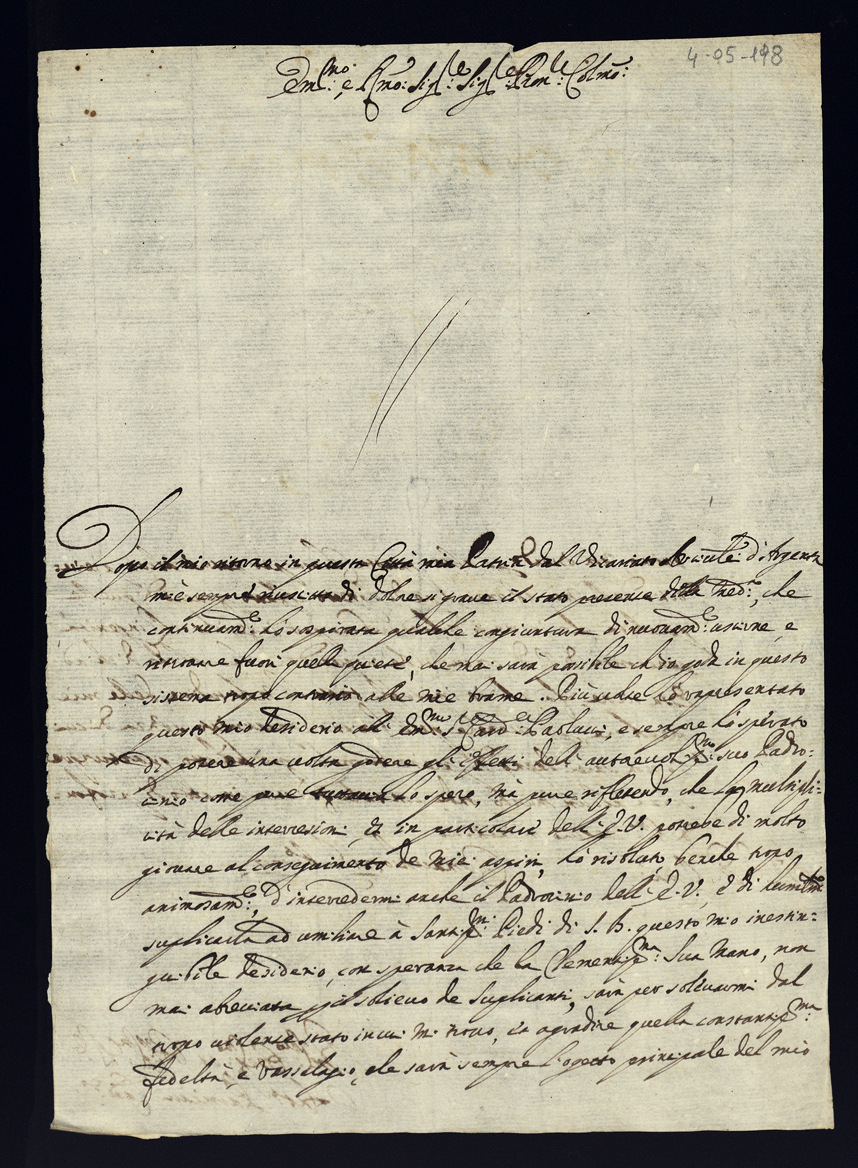 4-05-198
Em:mo e Rmo: Sig:re Sig:re Pron: Colmo:
Dopo il mio ritorno in questa Città mia Patria dal Vicariato d'Argenta
m'è sempre riuscito di dolore si grave il stato presente della med:a, che
continuam:e hò sospirata qualche congiuntura di nuovam:e uscirne, e
ritrovare fuori quella quiete, che mai sarà possibile ch'io goda in questo
sistema tropo contrario alle mie brame. Più volte hò rapresentato
questo mio desiderio all' Em:mo S: Card:le Paolucci, e sempre hò sperato
di potere una volta godere gli effetti dell' autorevoliss:mo suo Padro:
cinio come pure tuttavia lo spero, mà pure riflettendo, che la multipli:
cità delle intercesioni, et in particolare dell' E.V. potrebe di molto
giovare al conseguimento de miei, hò risoluto benche tropo
animosam:e, d'intercedermi anche il Padrocinio dell' E.V., e di
suplicarla ad umiliare à Santiss:mi Piedi di S. B. questo mio inestin:
guibile desiderio, con speranza che la Clementiss:ma Sua Mano, non
mai abreviata p il solievo de Suplicanti, sarà per solevarmi dal
tropo violente stato in cui mi trovo, et agradire quella constantiss:ma
fedeltà, e Vassalagio, che sarà sempre l'ogetto principale del mio